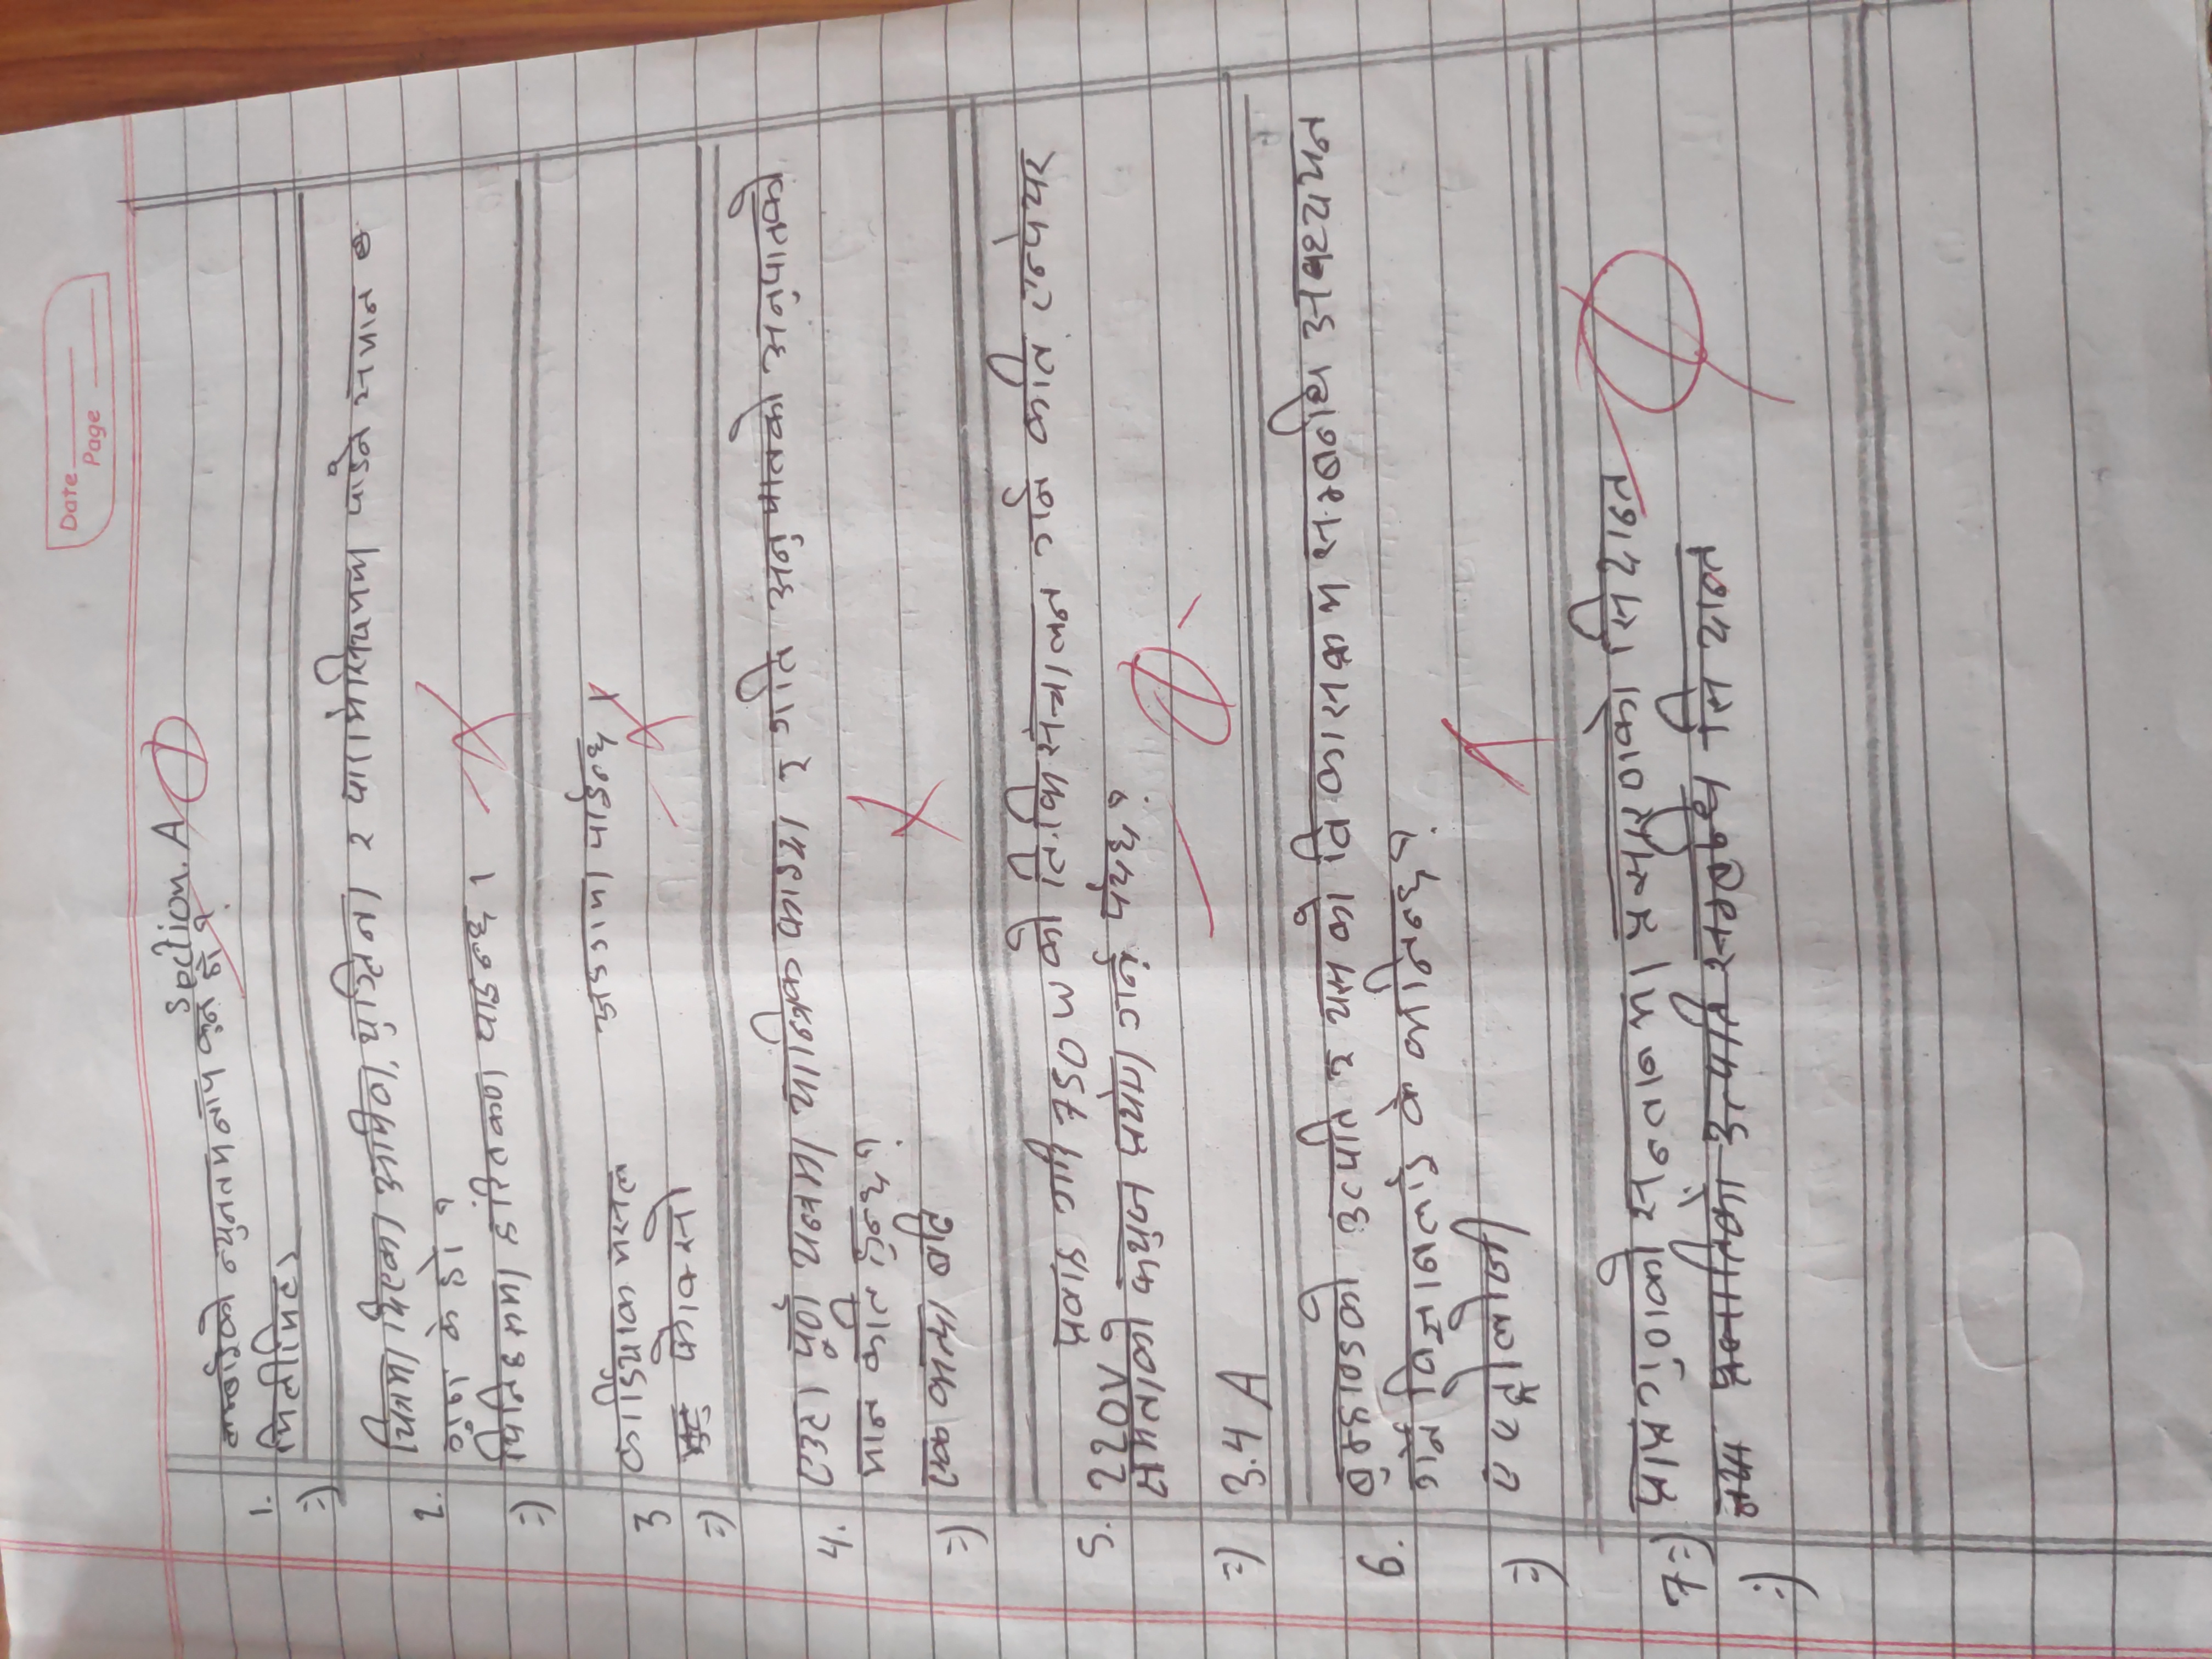 Date
Page
Section. A
1. लम्बाईको न्युनतम नाप कुन हो ?
=) मिलीमिटर
2. चित्रमा दिएका अमिवा, युग्लिना र पारामेसियममा पाउने समान
गुण के हो ?
=) यिनिहरूमा हरितकण पाइन्छ ।
3 कार्डियाक मसल अङगमा पाईन्छ ।
=) फोक्सो
4. एउटा पूर्ण यन्त्रमा यान्त्रिक फाइदा र गति अनुपातको अनुपातको
मान कति हुन्छ ?
=) एक भन्दा बढि
5. 220V प्रवाह गरी 750W को टि.भि संचालन गर्न कति एम्पेयर
क्षमताको फ्युज प्रयोग गर्नु पर्दछ ?
=) 3.4 A
6. ब्रम्हाण्डको उत्पति र यसको विकासक्रम सम्बन्धि अध्ययन
गर्ने विज्ञानलाई के भनिन्छ ?
=)
7=) प्राप्त गुणको सन्तानमा प्रसारणको सिदान्त
=) नया प्रजातिको उत्पति सम्बन्धि सिदान्त